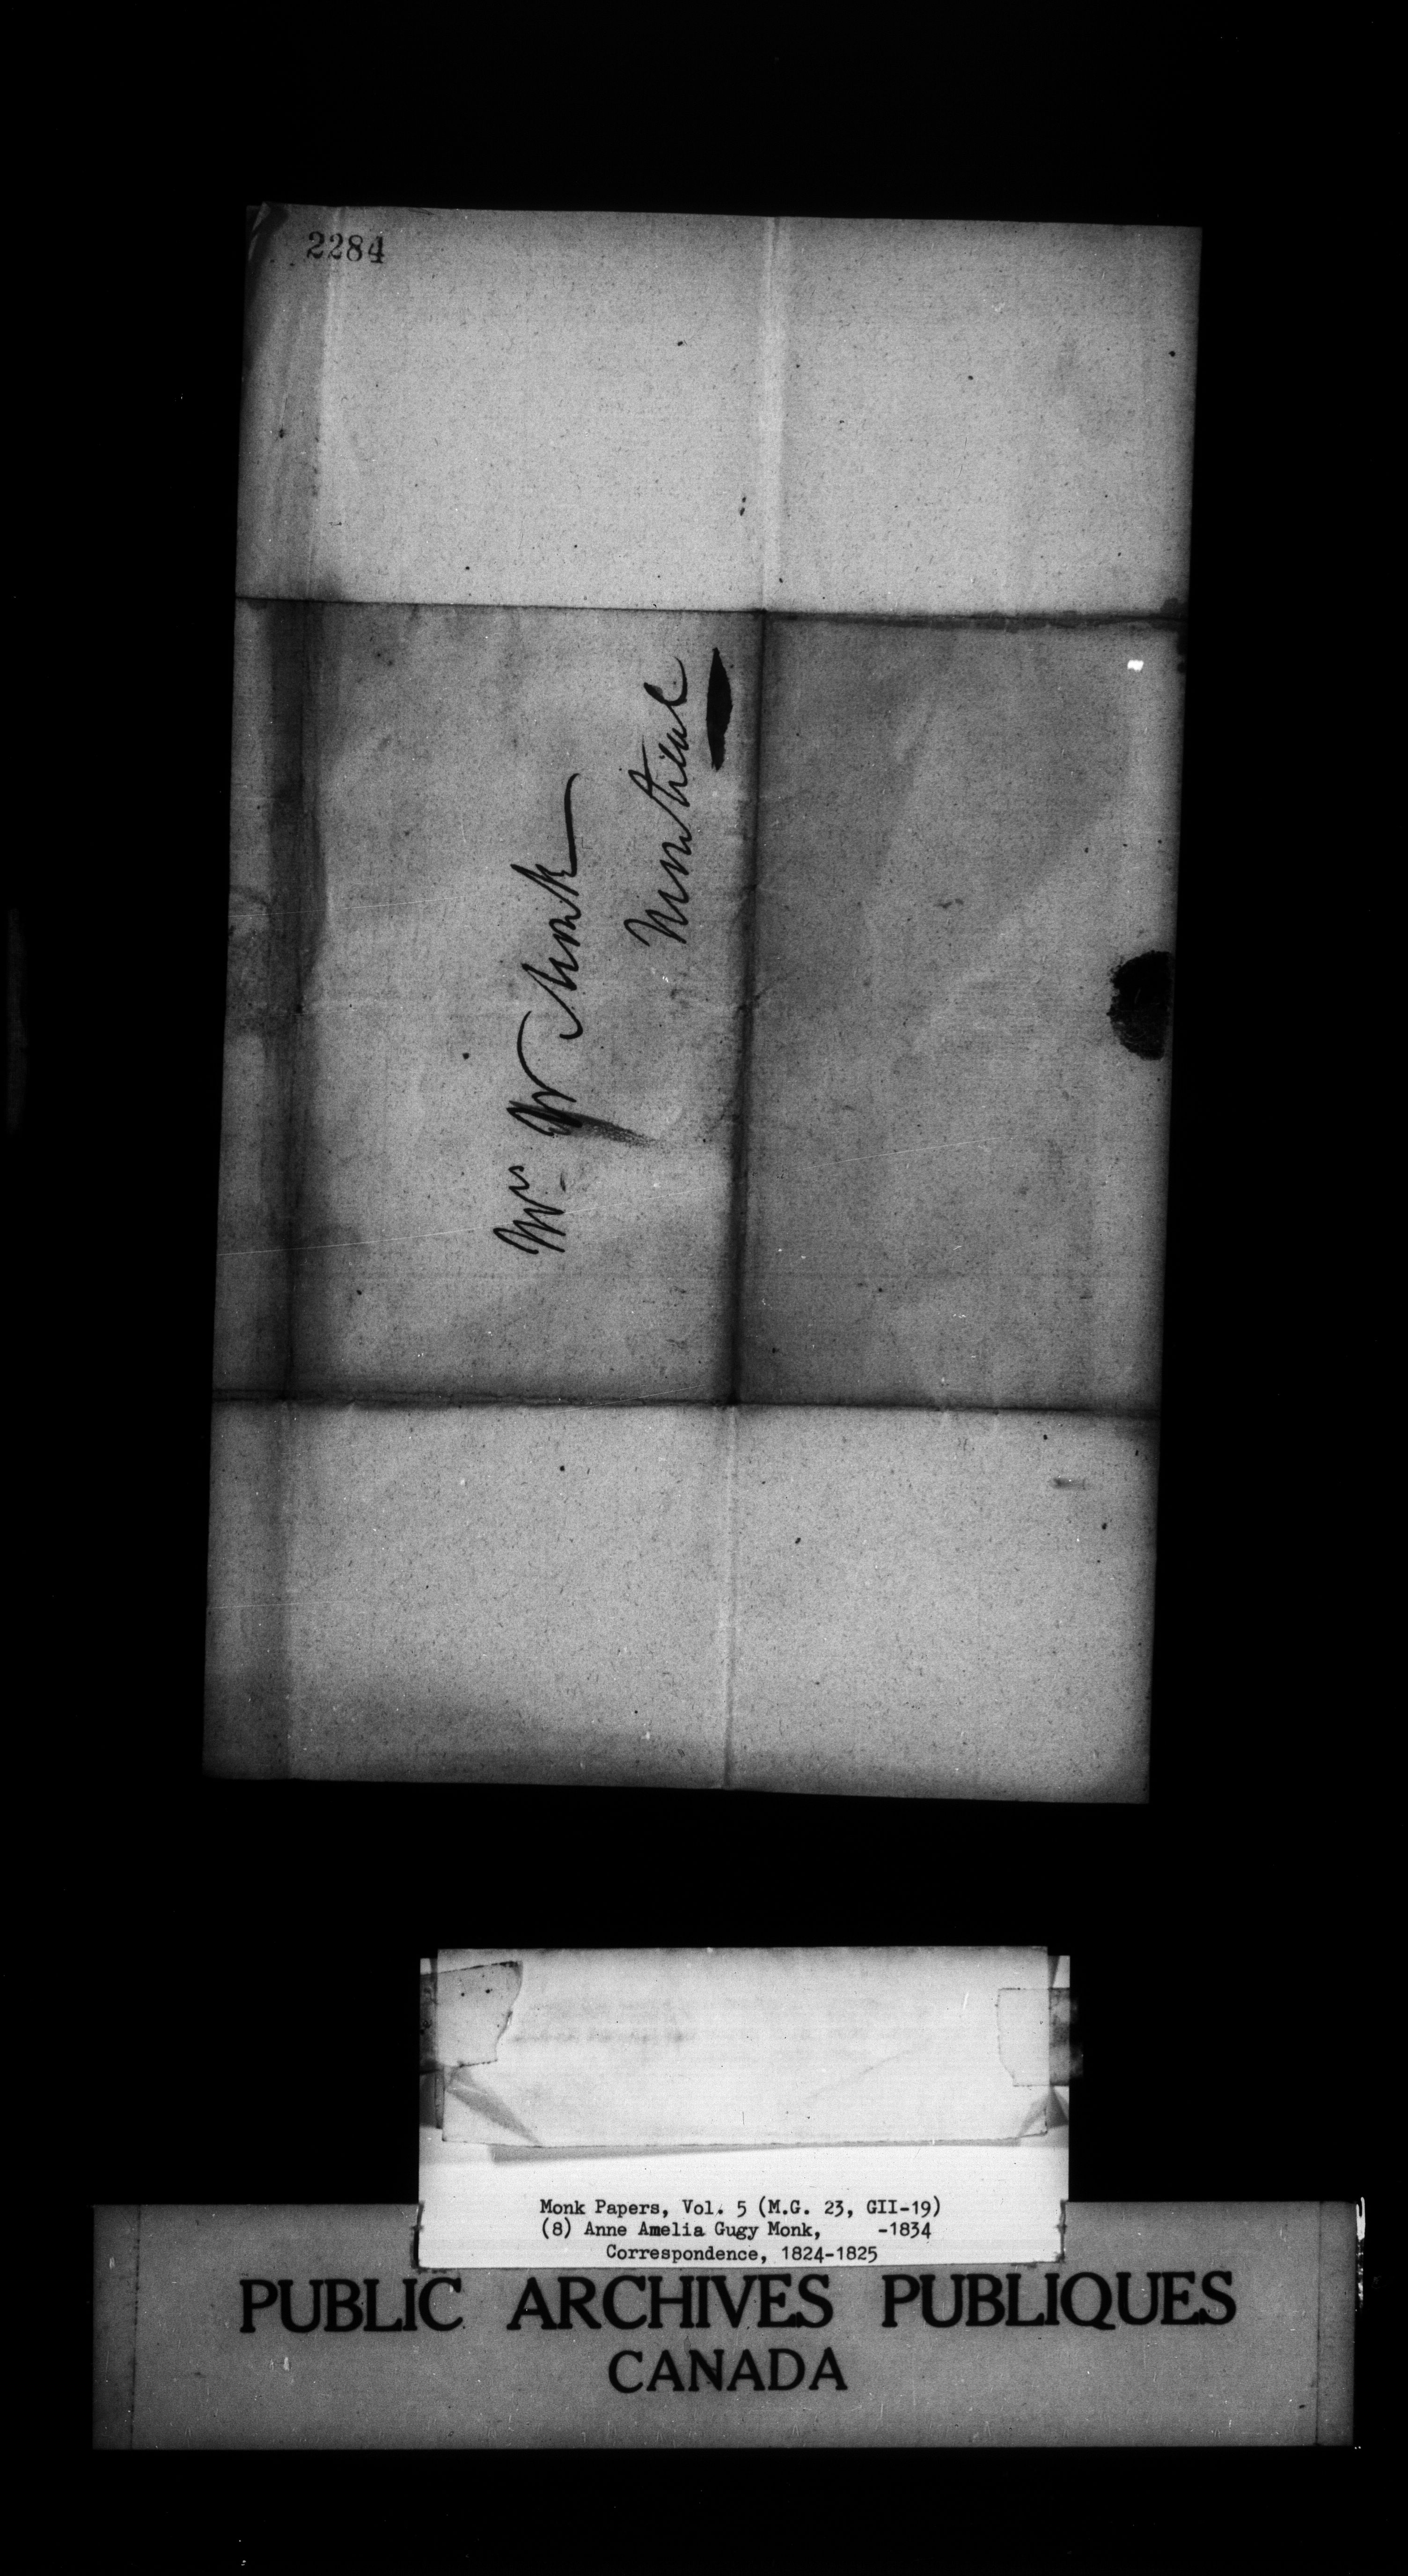 2284
Mrs W Monk
Montreal
Monk Papers, Vol. 5 (M.G. 23, GII-19)
(8) Anne Amelia Gugy Monk, -1834
Correspondence, 1824-1825
PUBLIC ARCHIVES PUBLIQUES
CANADA